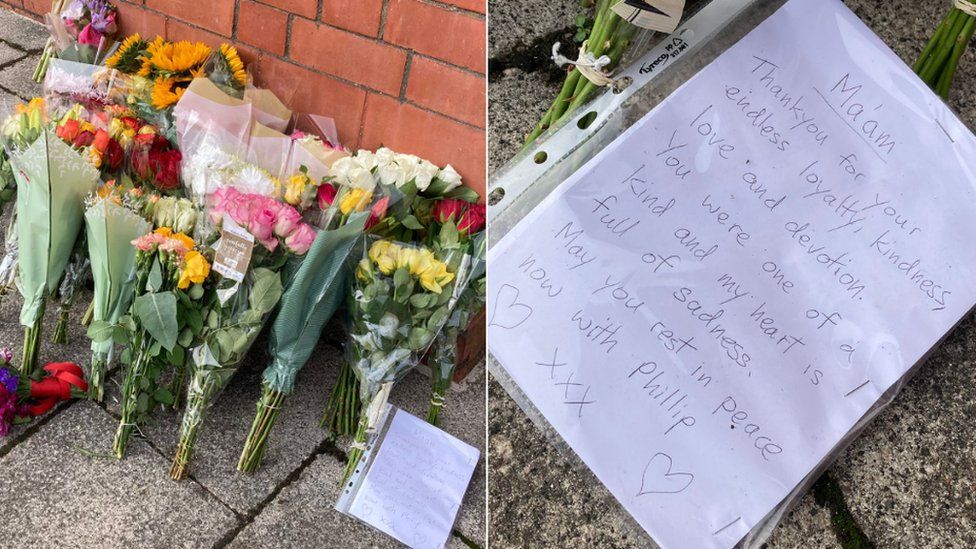 Ma'am
Thankyou for your
endless loyalty, kindness,
love and devotion.
You were one of a
kind and my heart is
full of sadness.
May you rest in peace
now with Phillip
XXX